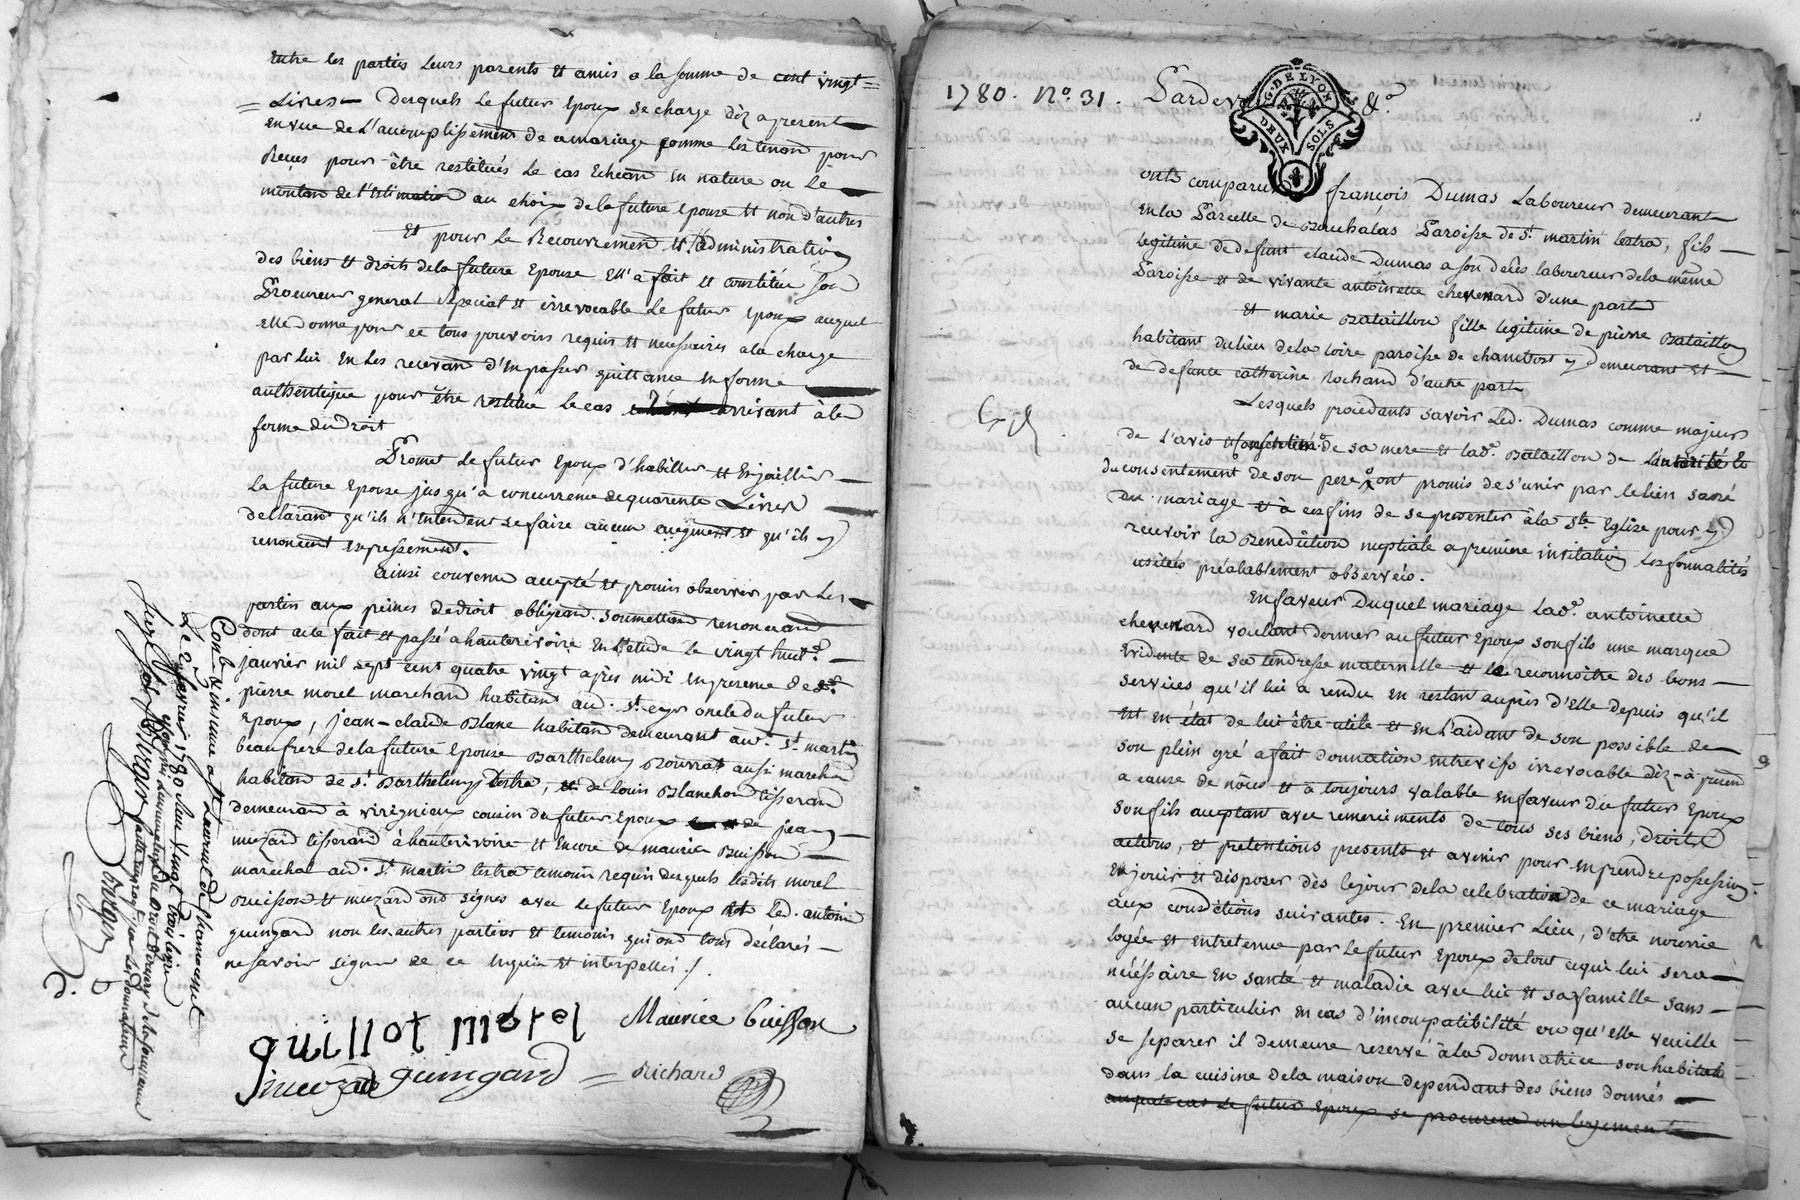 Entre les parties Leurs parents Et amis a la somme de cent vingt =
= Livres Desquels Le futur Epoux se charge dèz apresent
En vue de L'accomplissement de ce mariage comme Les tenant pour
Recues pour être restitués Le cas Echéan En nature ou Le
montan de l'estimation au choix de la future Epouse Et non d'autres
Et pour Le Recouvremen Et l'administration
des biens Et droits de la future Epouse Ell'a fait Et constitüe son
Procureur general Special Et irrevocable Le futur Epoux auquel
Elle donne pour ce tous pouvoirs requis Et necessaires a la charge
par Lui En Les recevan d'En passer quittance En forme
authentique pour être restitue Le cas arrivant à la
forme du Droit
Promet Le futur Epoux d'habiller Et Enjailler
La future Epouse jusqu'a concurrence de quarente Livres
declarant qu'ils n'Entendent se faire aucun augment Et qu'ils y
renoncent Expressement.
Ainsi convenu accepté Et promis observer par Les
parties aux peines de droit obligean. soumettan renoncean
dont acte fait Et passé a hauterivoire En L'etude Le vingt huit
janvier mil sept cent quatre vingt après midi En presence de
pierre morel marchan habitan aud. St. cyr oncle du futur
Epoux, jean-claude Blanc habitan demeurant aud. St. martin
beaufrére de la future Epouse Barthelemy Bouvrat aussi marchan
habitan de St. Barthelemy Lestra, de Louis Blanchon tisseran
demeuran à virignieux cousin du futur Epoux jean
muzard tisseran à hauterivoire Et Encore de maurice Buisson
marechal aud. St. martin Lestra temoins requis desquels Lesdits morel
Buisson Et muzard ond signés avec Le futur Epoux Led. antoine
guingard non Les autres parties Et temoins qui ond tous déclarés
ne savoir signer de ce Enquis Et interpellés ./.
guillot morel Maurice buisson
muzard guingard = Richard
Controlé insinué a St Laurent de Chamousset
Le 2 fevrier 1780 Reçu vingt trois livres
1780. No. 31.
G. DE LYON
DEUX SOLS
&a.
onts comparus françois Dumas Laboureur demeurant
En la Parcelle de Bouchalas Paroisse de St. martin Lestra, fils
Legitime de defunt claude Dumas a son décès laboureur de la même
Paroisse Et de vivante antoinette chevenard d'une part
Et marie Bataillon fille legitime de pierre Bataillon
habitant du lieu de la Loire paroisse de chambost y demeurant Et
de defunte catherine Rochand d'autre part
Lesquels procedants savoir Led. Dumas comme majeur
de L'avis de sa mere Et lade. Bataillon de L'autorité Et
du consentement de son pere ont promis de s'unir par le lien sacré
Du mariage Et à ces fins de se presenter à la Ste. Eglise pour y
recevoir la Benediction nuptiale a premiere invitation Les formalités
usitées préalablement observées.
En faveur Duquel mariage Lade. antoinette
chevenard voulant donner au futur Epoux son fils une marque
Evidente de sa tendresse maternelle Et le reconnoitre des bons
services qu'il lui a rendu En restant auprès d'Elle depuis qu'il
Est En état de lui être utile Et En L'aidant de son possible de
son plein gré a fait donnation entrevifs irrevocable dèz-à-presend
a cause de nôces Et à toujours valable En faveur du futur Epoux
son fils acceptant avec remerciments de tous ses biens, droits
actions, Et pretentions presents Et avenir pour En prendre possession
En jouir Et disposer dès le jour de la celebration de ce mariage
aux conditions suivantes. En premier Lieu, d'être nourrie
logée Et Entretenue par Le futur Epoux de tout ce qui lui sera
nécéssaire En santé Et maladie avec lui Et sa famille sans
aucun particulier En cas d'incompatibilité ou qu'Elle veuille
se separer il demeure reservé à la Donnatrice son habitation
dans la cuisine de la maison dependant des biens donnés
auquel cas Le futur Epoux se procurera un logement